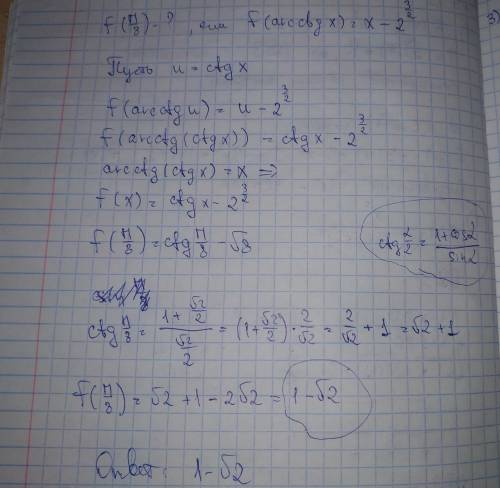 f(π/8) - ? , если f(arcctg x) = x - 2^(3/2)
3)
Пусть u = ctg x
f(arcctg u) = u - 2^(3/2)
f(arcctg(ctg x)) = ctg x - 2^(3/2)
arcctg(ctg x) = x ⇒
f(x) = ctg x - 2^(3/2)
f(π/8) = ctg π/8 - √8
ctg α/2 = (1 + cos α)/(sin α)
ctg π/8 = (1 + √2/2)/(√2/2) = (1 + √2/2) · 2/√2 = 2/√2 + 1 = √2 + 1
f(π/8) = √2 + 1 - 2√2 = 1 - √2
Ответ: 1 - √2